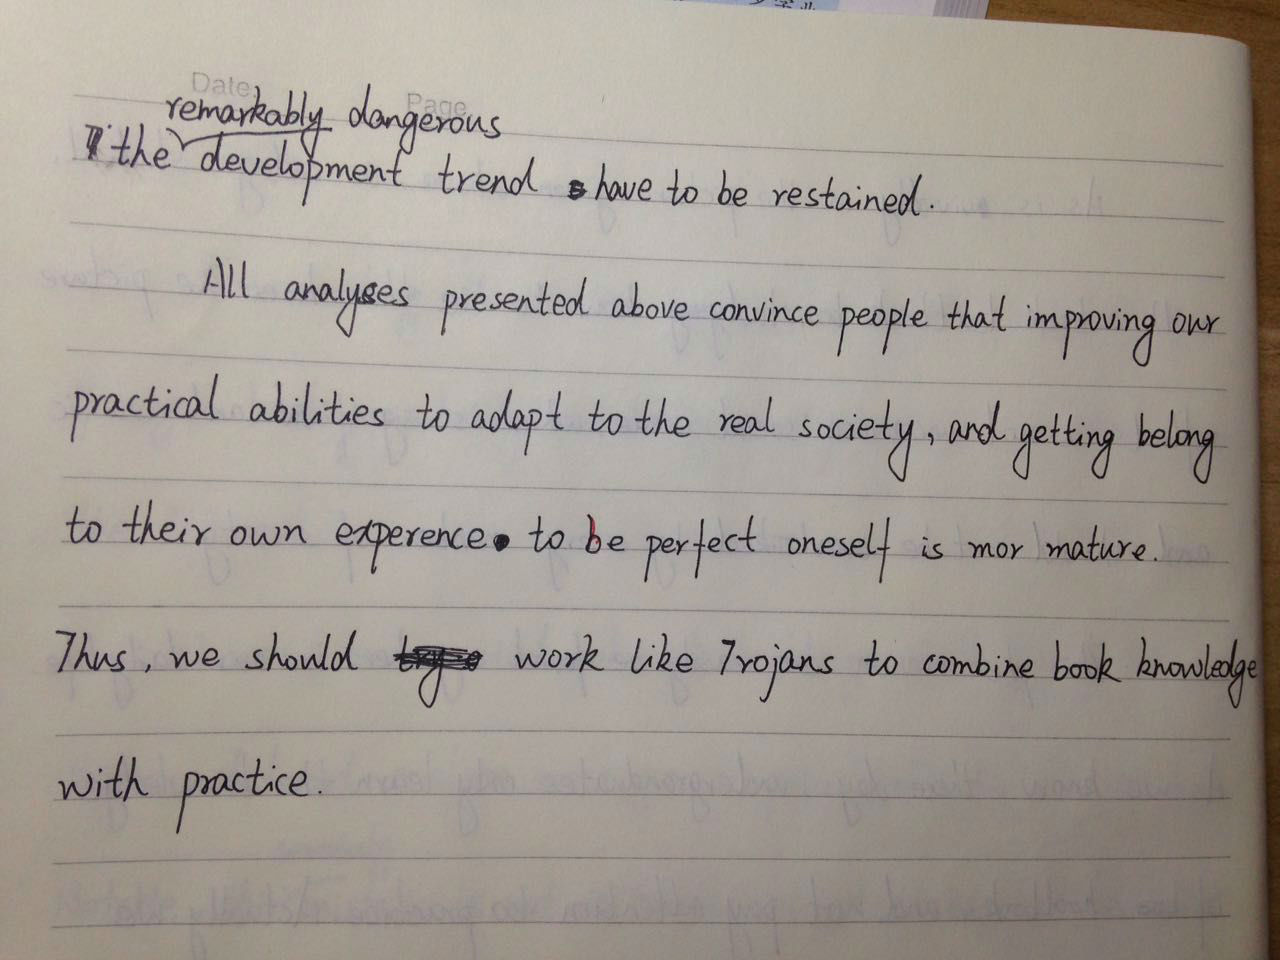 Date
Page
remarkably dangerous
the development trend have to be restained.
All analyses presented above convince people that improving our
practical abilities to adapt to the real society, and getting belong
to their own experence. to be perfect oneself is mor mature.
Thus, we should work like Trojans to combine book knowledge
with practice.